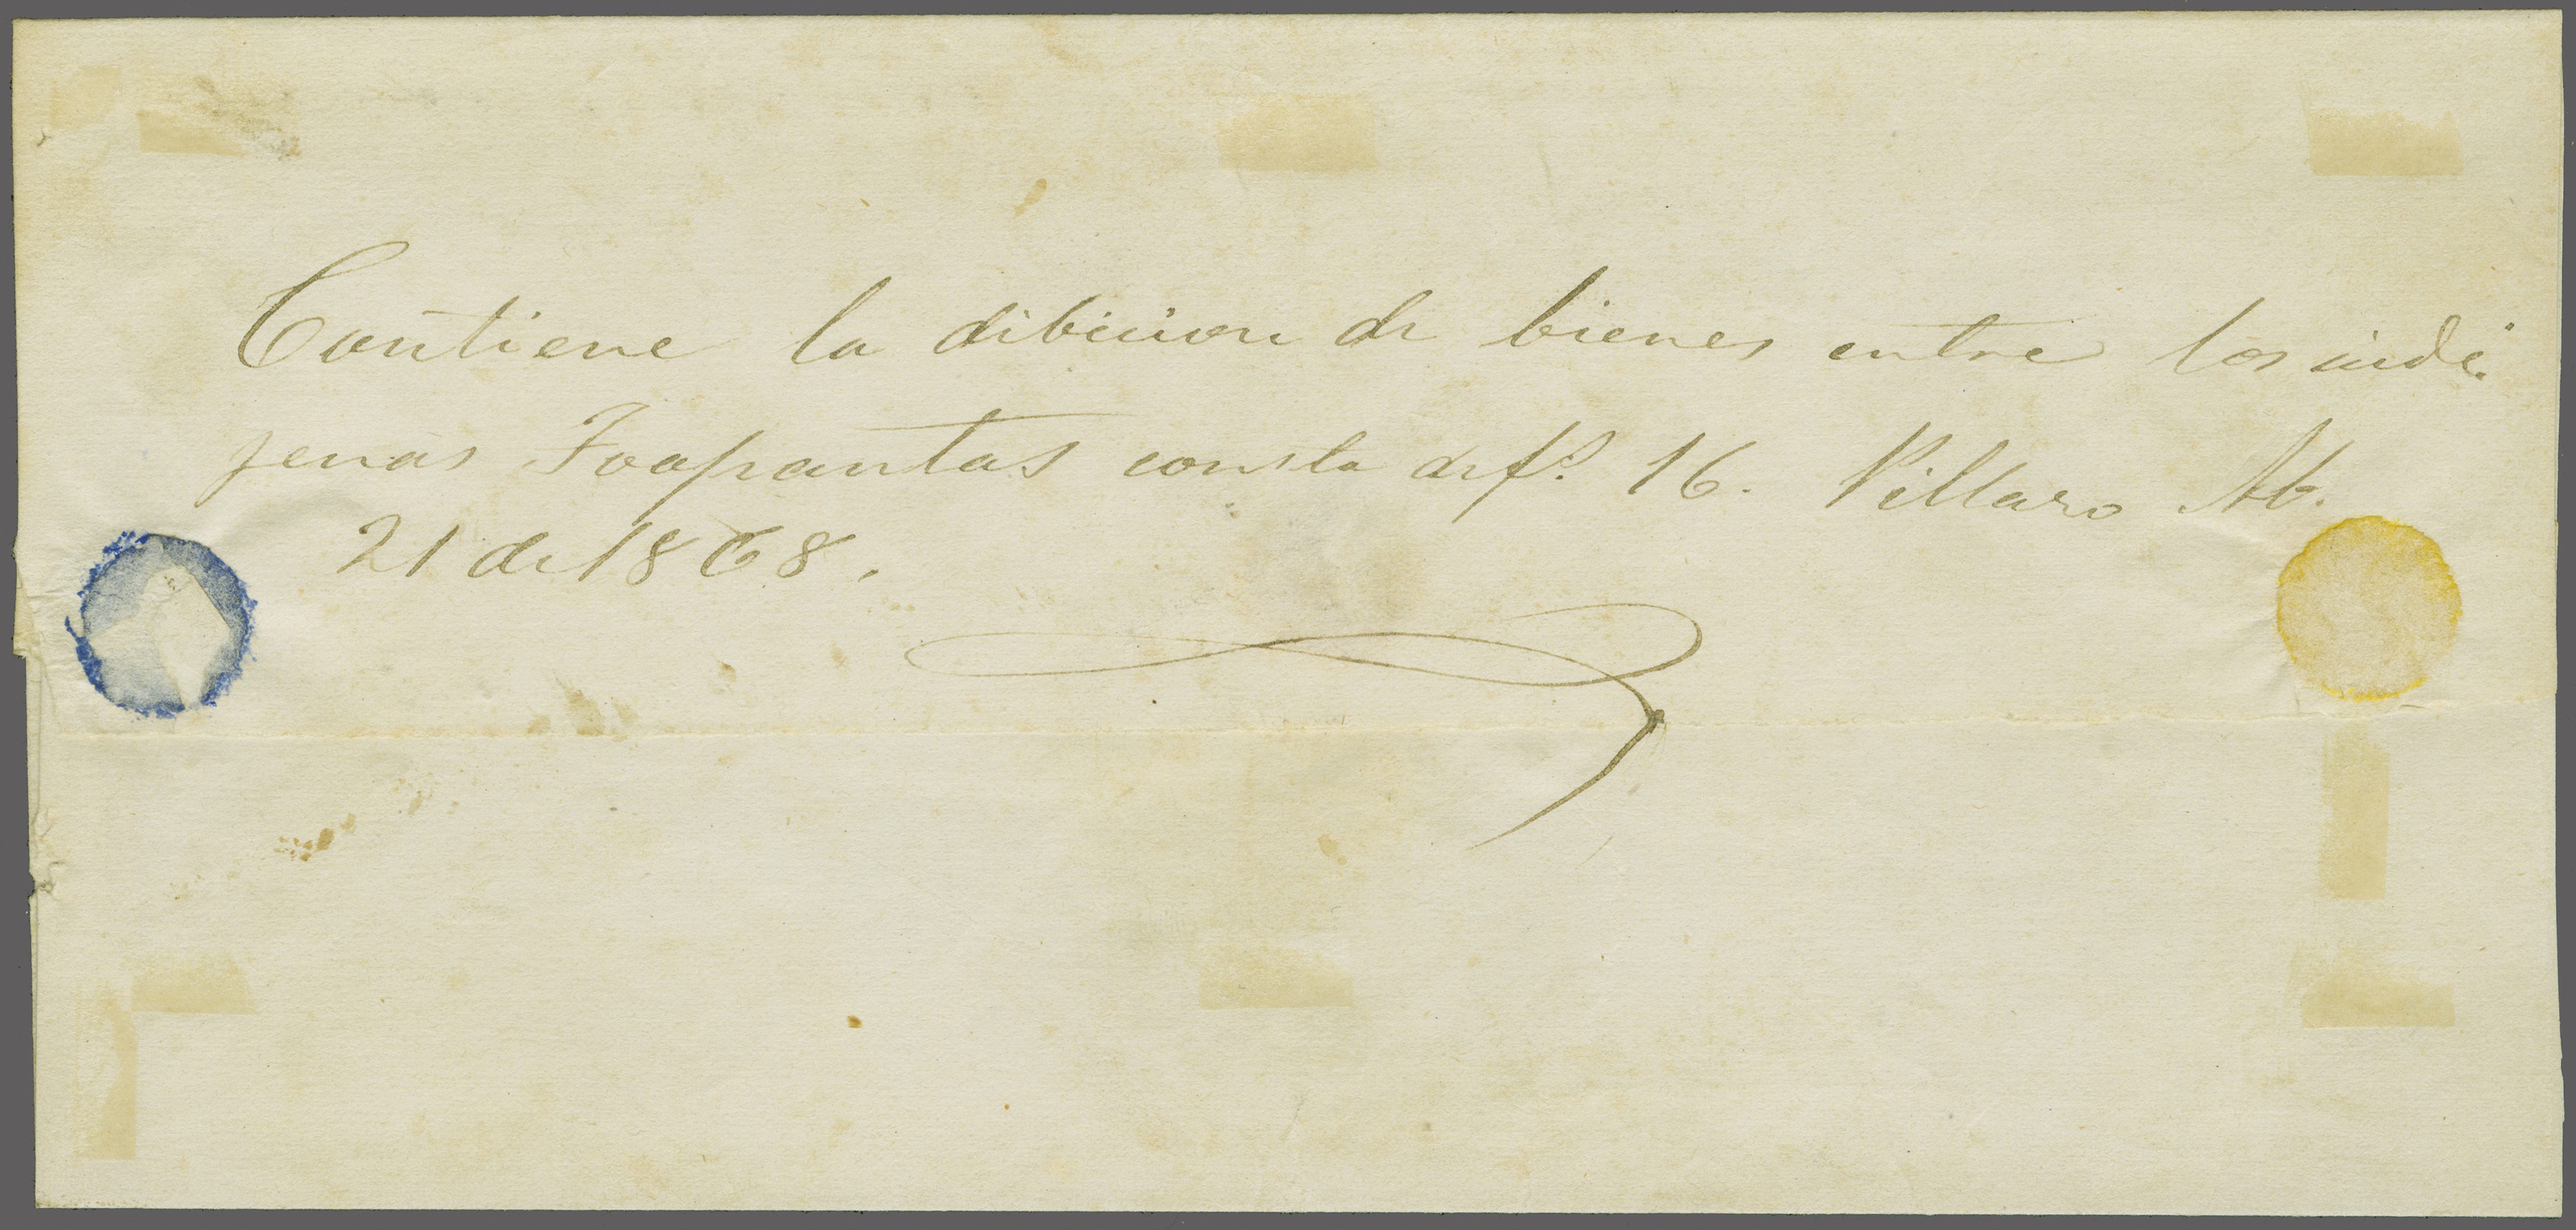 Contiene la dibicion de bienes entre los indi-
jenas Toapantas consta de fs. 16. Pillaro Ab.
21 de 1868.